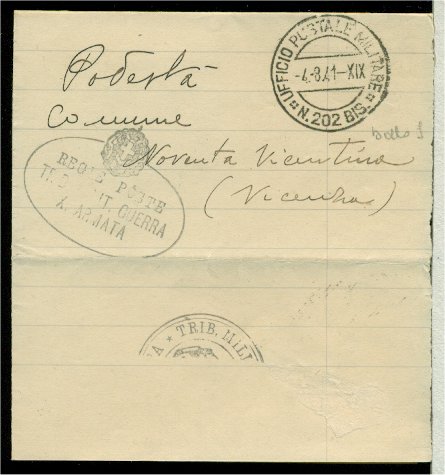 UFFICIO POSTALE MILITARE
-4-8.41-XIX
N. 202 BIS.
Podestà
Comune
bollo
Noventa Vicentina
(Vicenza)
REGIE POSTE
GUERRA
X ARMATA
TRIB. MILI